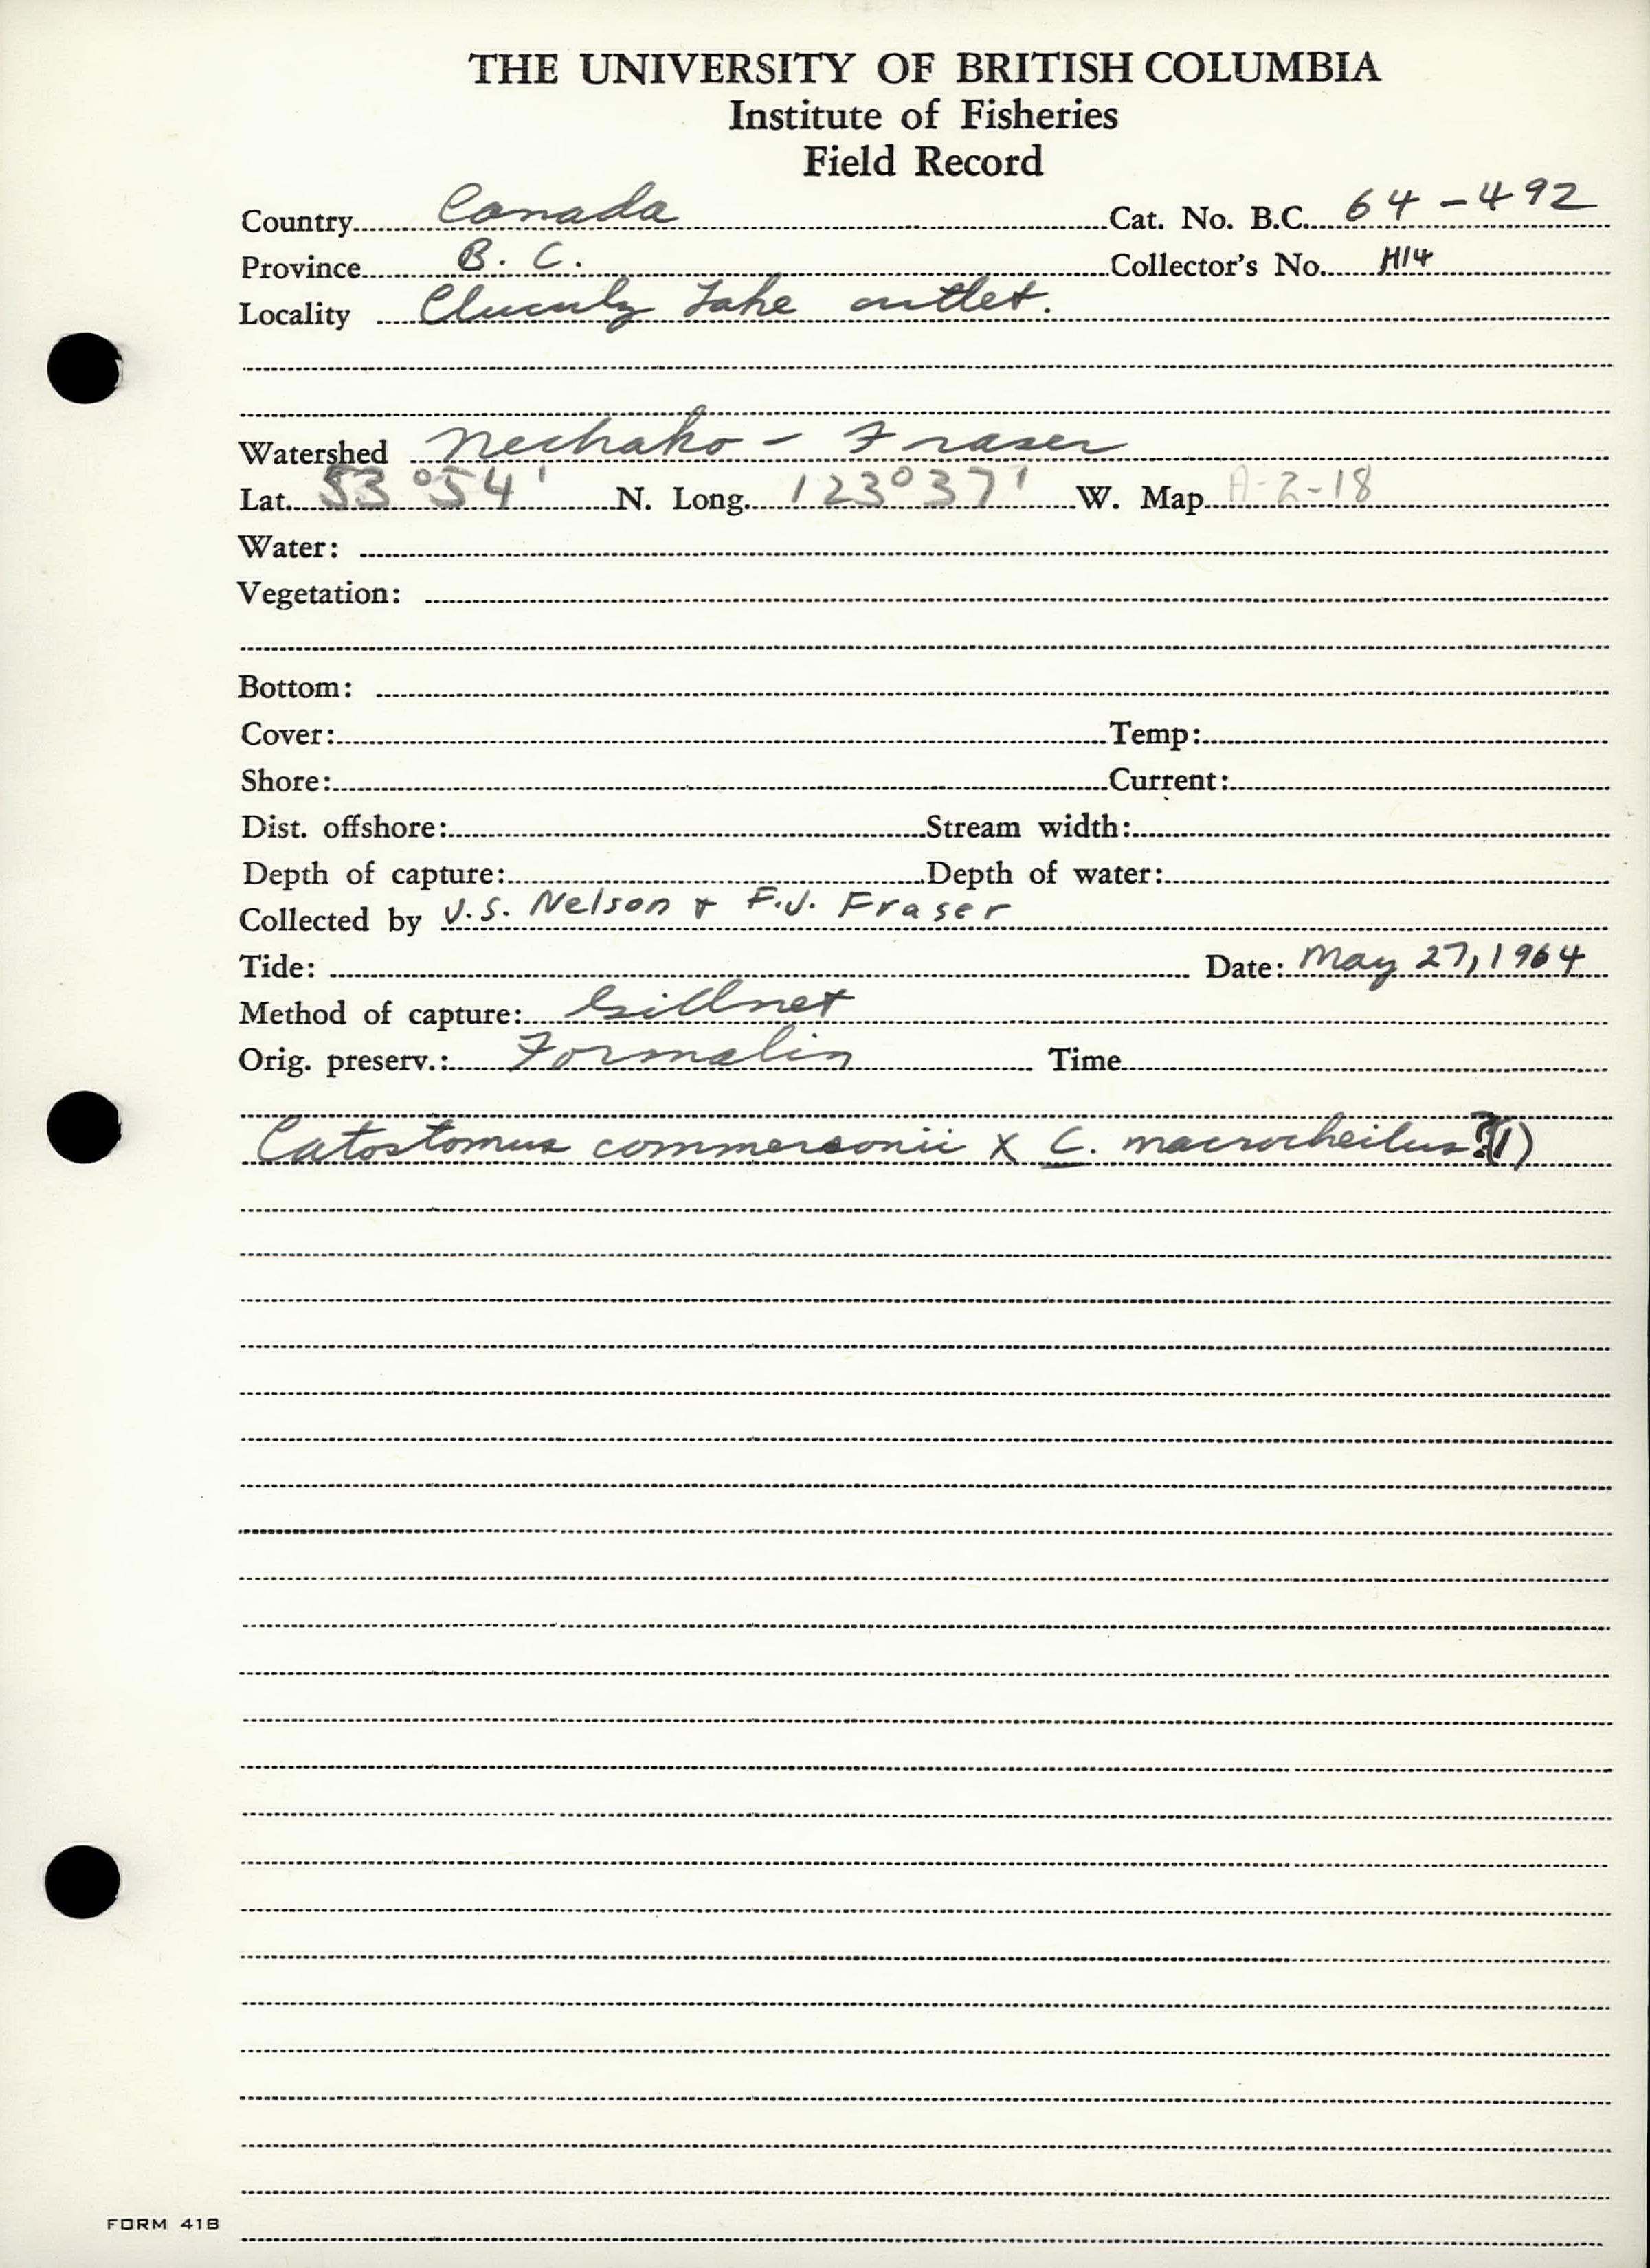 THE UNIVERSITY OF BRITISH COLUMBIA
Institute of Fisheries
Field Record
Country Canada Cat. No. B.C. 64-492
Province B. C. Collector's No. H14
Locality Cluculz Lake outlet.
Watershed Nechako - Fraser
Lat. 53°54' N. Long. 123°37' W. Map A-2-18
Water:
Vegetation:
Bottom:
Cover: Temp:
Shore: Current:
Dist. offshore: Stream width:
Depth of capture: Depth of water:
Collected by J.S. Nelson & F.J. Fraser
Tide: Date: May 27, 1964
Method of capture: Gillnet
Orig. preserv.: Formalin Time
Catostomus commersonii X C. macrocheilus? (1)
FORM 41B